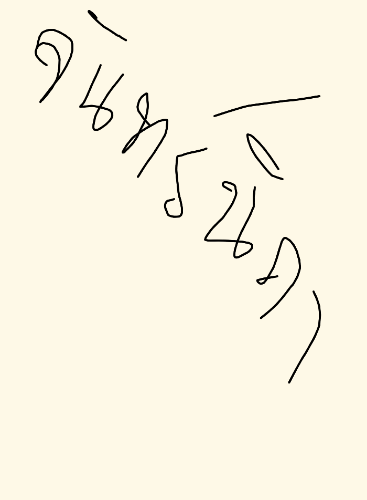 จันทร์นิภา